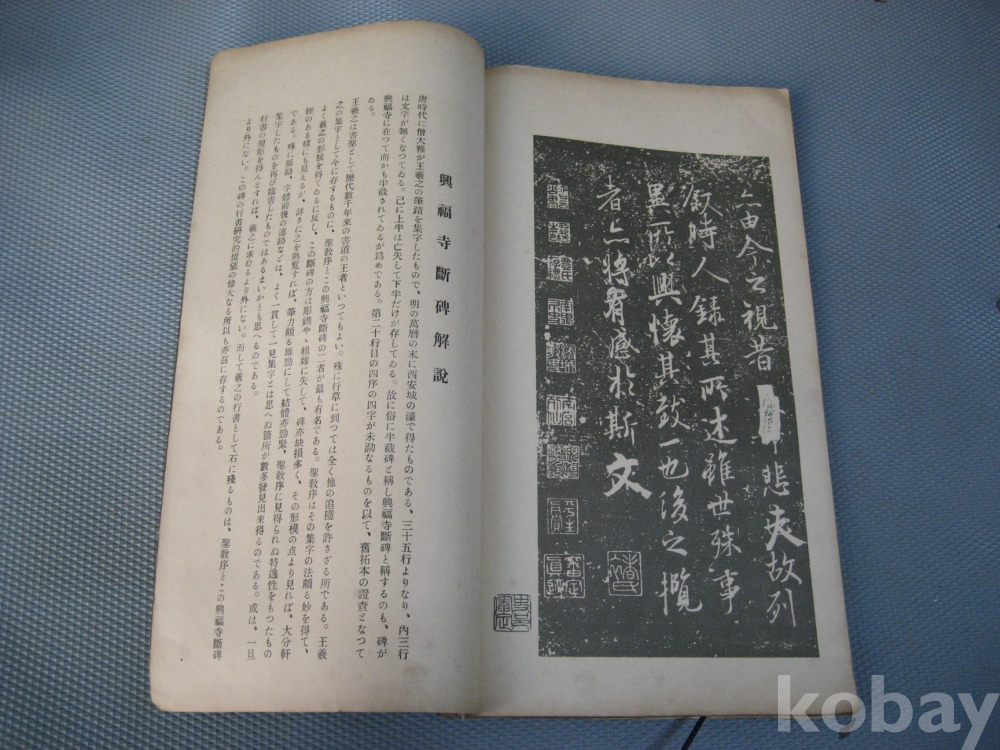 亦由今之視昔
悲夫故列
叙時人録其所述雖世殊事
異所以興懷其致一也後之攬
者亦將有感於斯文
興福寺斷碑解說
唐時代に僧大雅が王羲之の筆蹟を集字したもので、明の萬曆の末に西安城の濠で得たものである、三十五行よりなり、内三行
は文字が無くなつてゐる。己に上半は亡失して下半だけが存してゐる。故に俗に半截碑と稱し興福寺斷碑と稱するのも、碑が
興福寺に在つて而かも半截されてゐるが爲めである。第二十行目の四序の四字が未泐なるものを以て、舊拓本の證查となつて
ゐる。
王羲之は書聖として歷代數千年來の書道の王者といつてもよい。殊に行草に到つては全く他の追隨を許さざる所である。王羲
之の集字として今に存するものに、聖敎序とこの興福寺斷碑の二者が最も有名である。聖敎序はその集字の法頗る妙を得て、
よく羲之の形貌を得てゐるに反し、この斷碑の方は彫鐫やゝ粗雜に失して、碑亦缺損多く、その形模の点より見れば、大分軒
輊のある樣にも見えるが、詳さに之を熟覧すれば、筆力頗る雄勁にして結體亦勁緊、聖敎序に見得られぬ特逸性をもつたもの
である。殊に脈絡、字體前後の連絡などは、よく一貫して一見集字とは思へぬ箇所が數多發見出來得るのである。或は、一旦
集字したものを再び臨書したものではあるまいかとも思へるのである。
行書の規矩を得んとすれば、羲之に求むるより外にない。而して羲之の行書として石に殘るものは、聖敎序とこの興福寺斷碑
より外にない。この碑の行書硏究的價値の偉大なる所以も亦茲に存するのである。
kobay